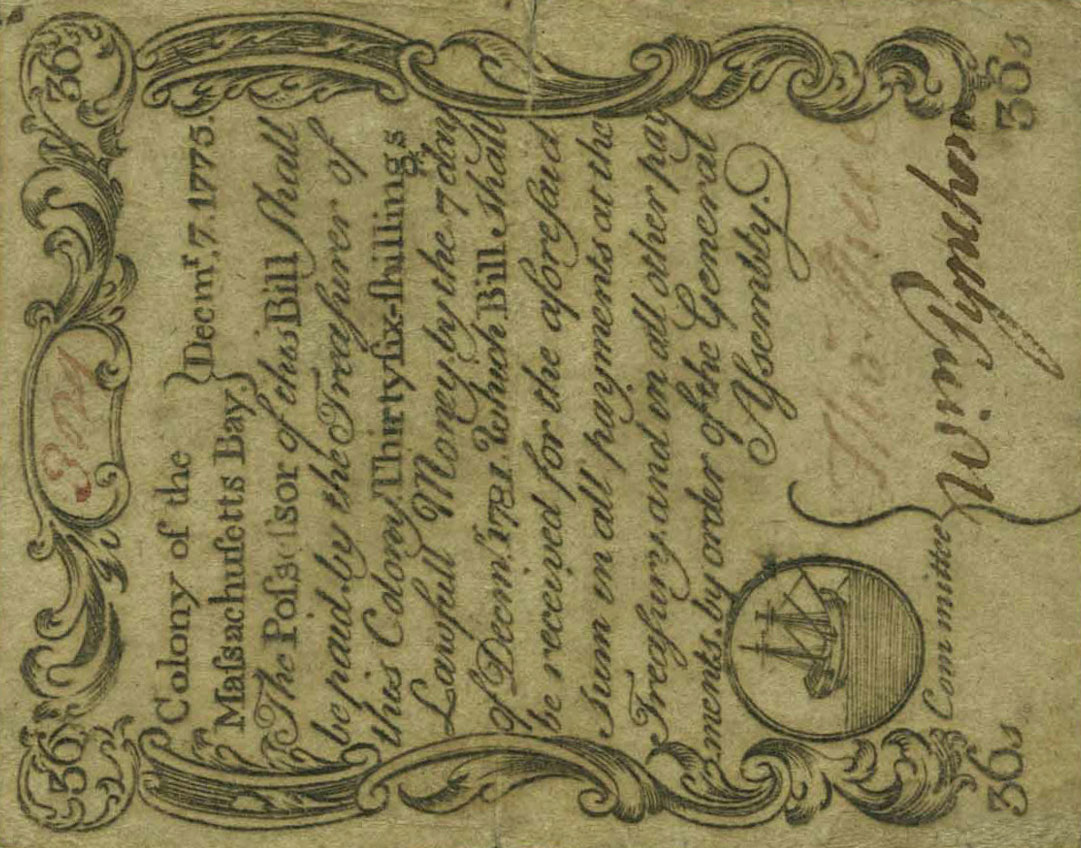 36 36
Colony of the
Maſsachuſetts Bay } Decmr. 7. 1775.
The Poſseſsor of this Bill ſhall
be paid, by the Treaſurer of
this Colony, Thirty ſix-ſhillings
Lawfull Money by the 7 day
of Decemr. 1781. Which Bill ſhall
be received for the aforeſaid
ſum in all payments at the
Treaſury, and in all other pay
ments, by order of the General
Aſsembly.
Committee
36s 36s